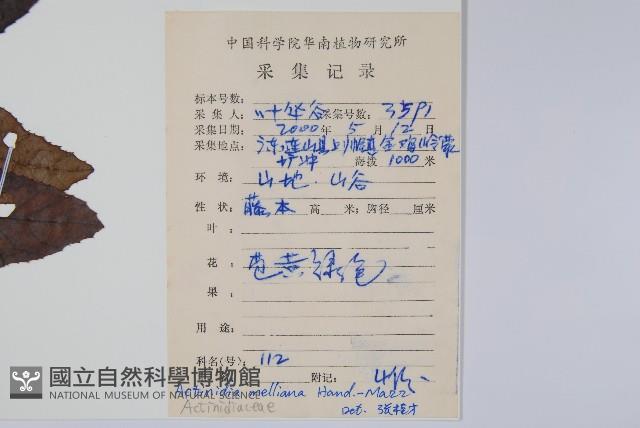 中国科学院华南植物研究所
采集记录
标本号数:
采集人: 叶华谷 采集号数: 3591
采集日期: 2000年5月12日
采集地点: 连山县上帅镇
海拔 1000 米
环境: 山地·山谷
性状: 藤本 高 米; 胸径 厘米
叶:
花: 黄绿色
果:
用途:
科名(号): 112
附记:
Actinidia melliana Hand.-Mazz
Actinidiaceae
Det. 张桂才
國立自然科學博物館
NATIONAL MUSEUM OF NATURAL SCIENCE